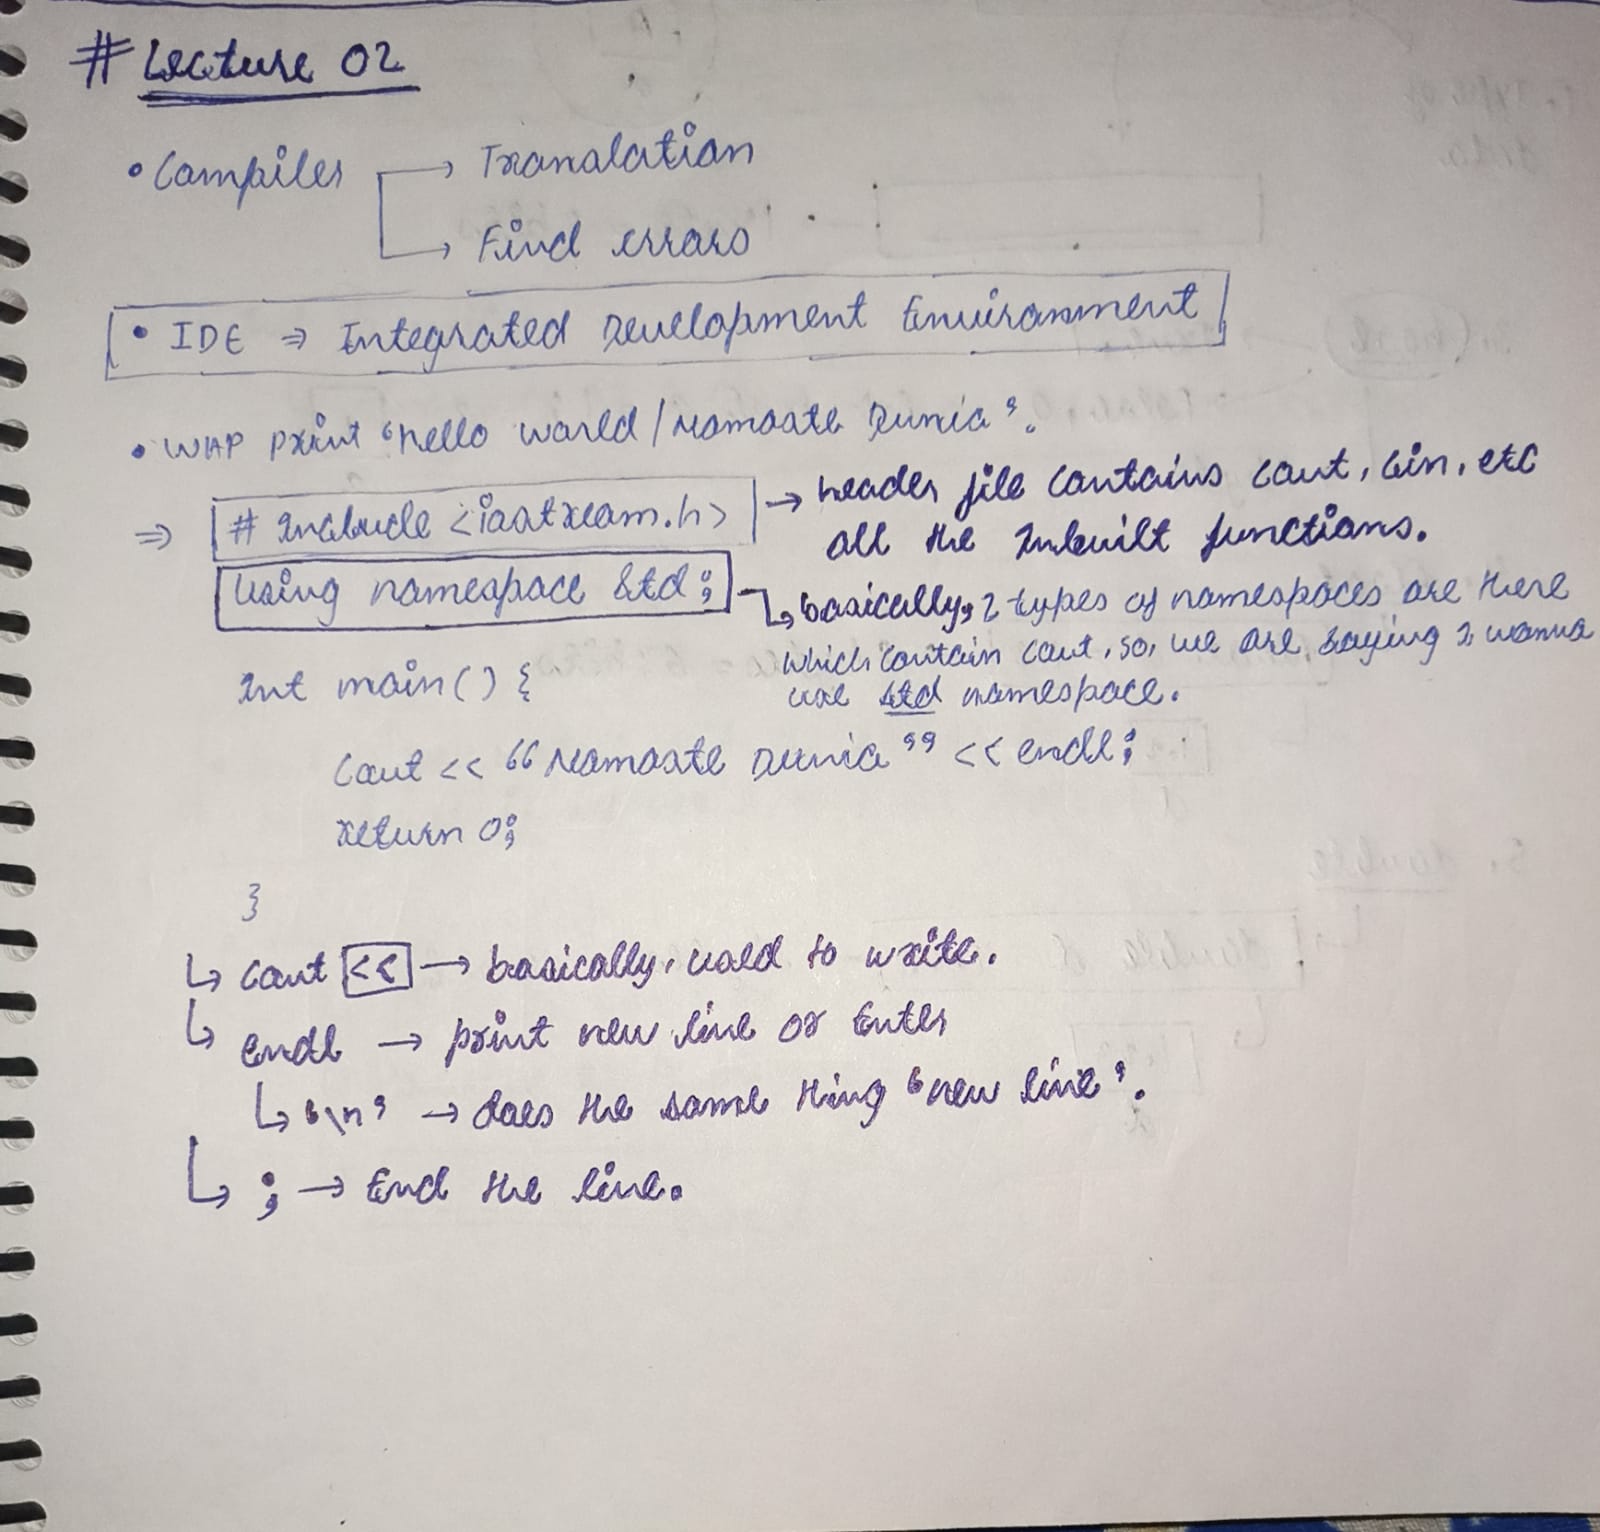 # Lecture 02
• Compiler → Translation
→ Find errors
• IDE ⇒ Integrated Development Environment
• WAP print 'hello world / Namaste Dunia'.
⇒ # Include <iostream.h> → header file contains cout, cin, etc
all the Inbuilt functions.
Using namespace std; ↳ basically, 2 types of namespaces are there
which contain cout, so, we are saying I wanna
use std namespace.
Int main() {
Cout << "Namaste Dunia" << endl;
return 0;
}
↳ Cout << → basically, used to write.
↳ endl → print new line or Enter
↳ '\n' → does the same thing 'new line'.
↳ ; → End the line.